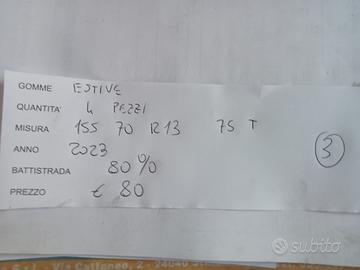 GOMME ESTIVE
QUANTITA' 4 PEZZI
MISURA 155 70 R13 75 T
ANNO 2023
3
BATTISTRADA 80%
PREZZO € 80
subito